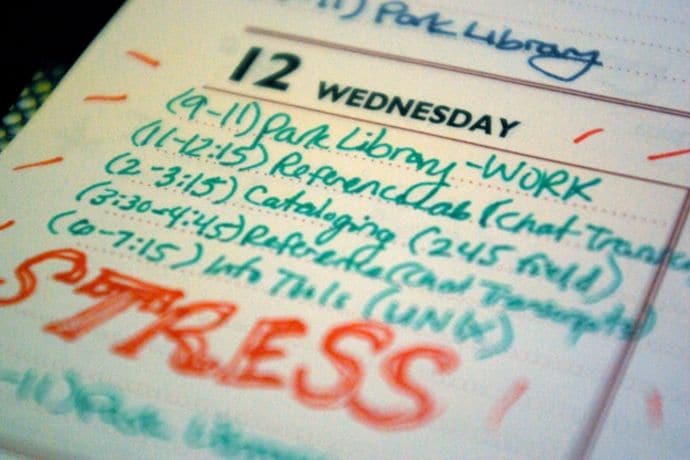 11) Park Library
12 WEDNESDAY
(9-11) Park Library - WORK
(11-12:15) Reference Lab (Chat Transc
(2-3:15) Cataloging (245 field)
(3:30-4:45) Reference (Chat Transcripts)
(6-7:15) Info Tools (UNIX)
STRESS
-11) Park Library